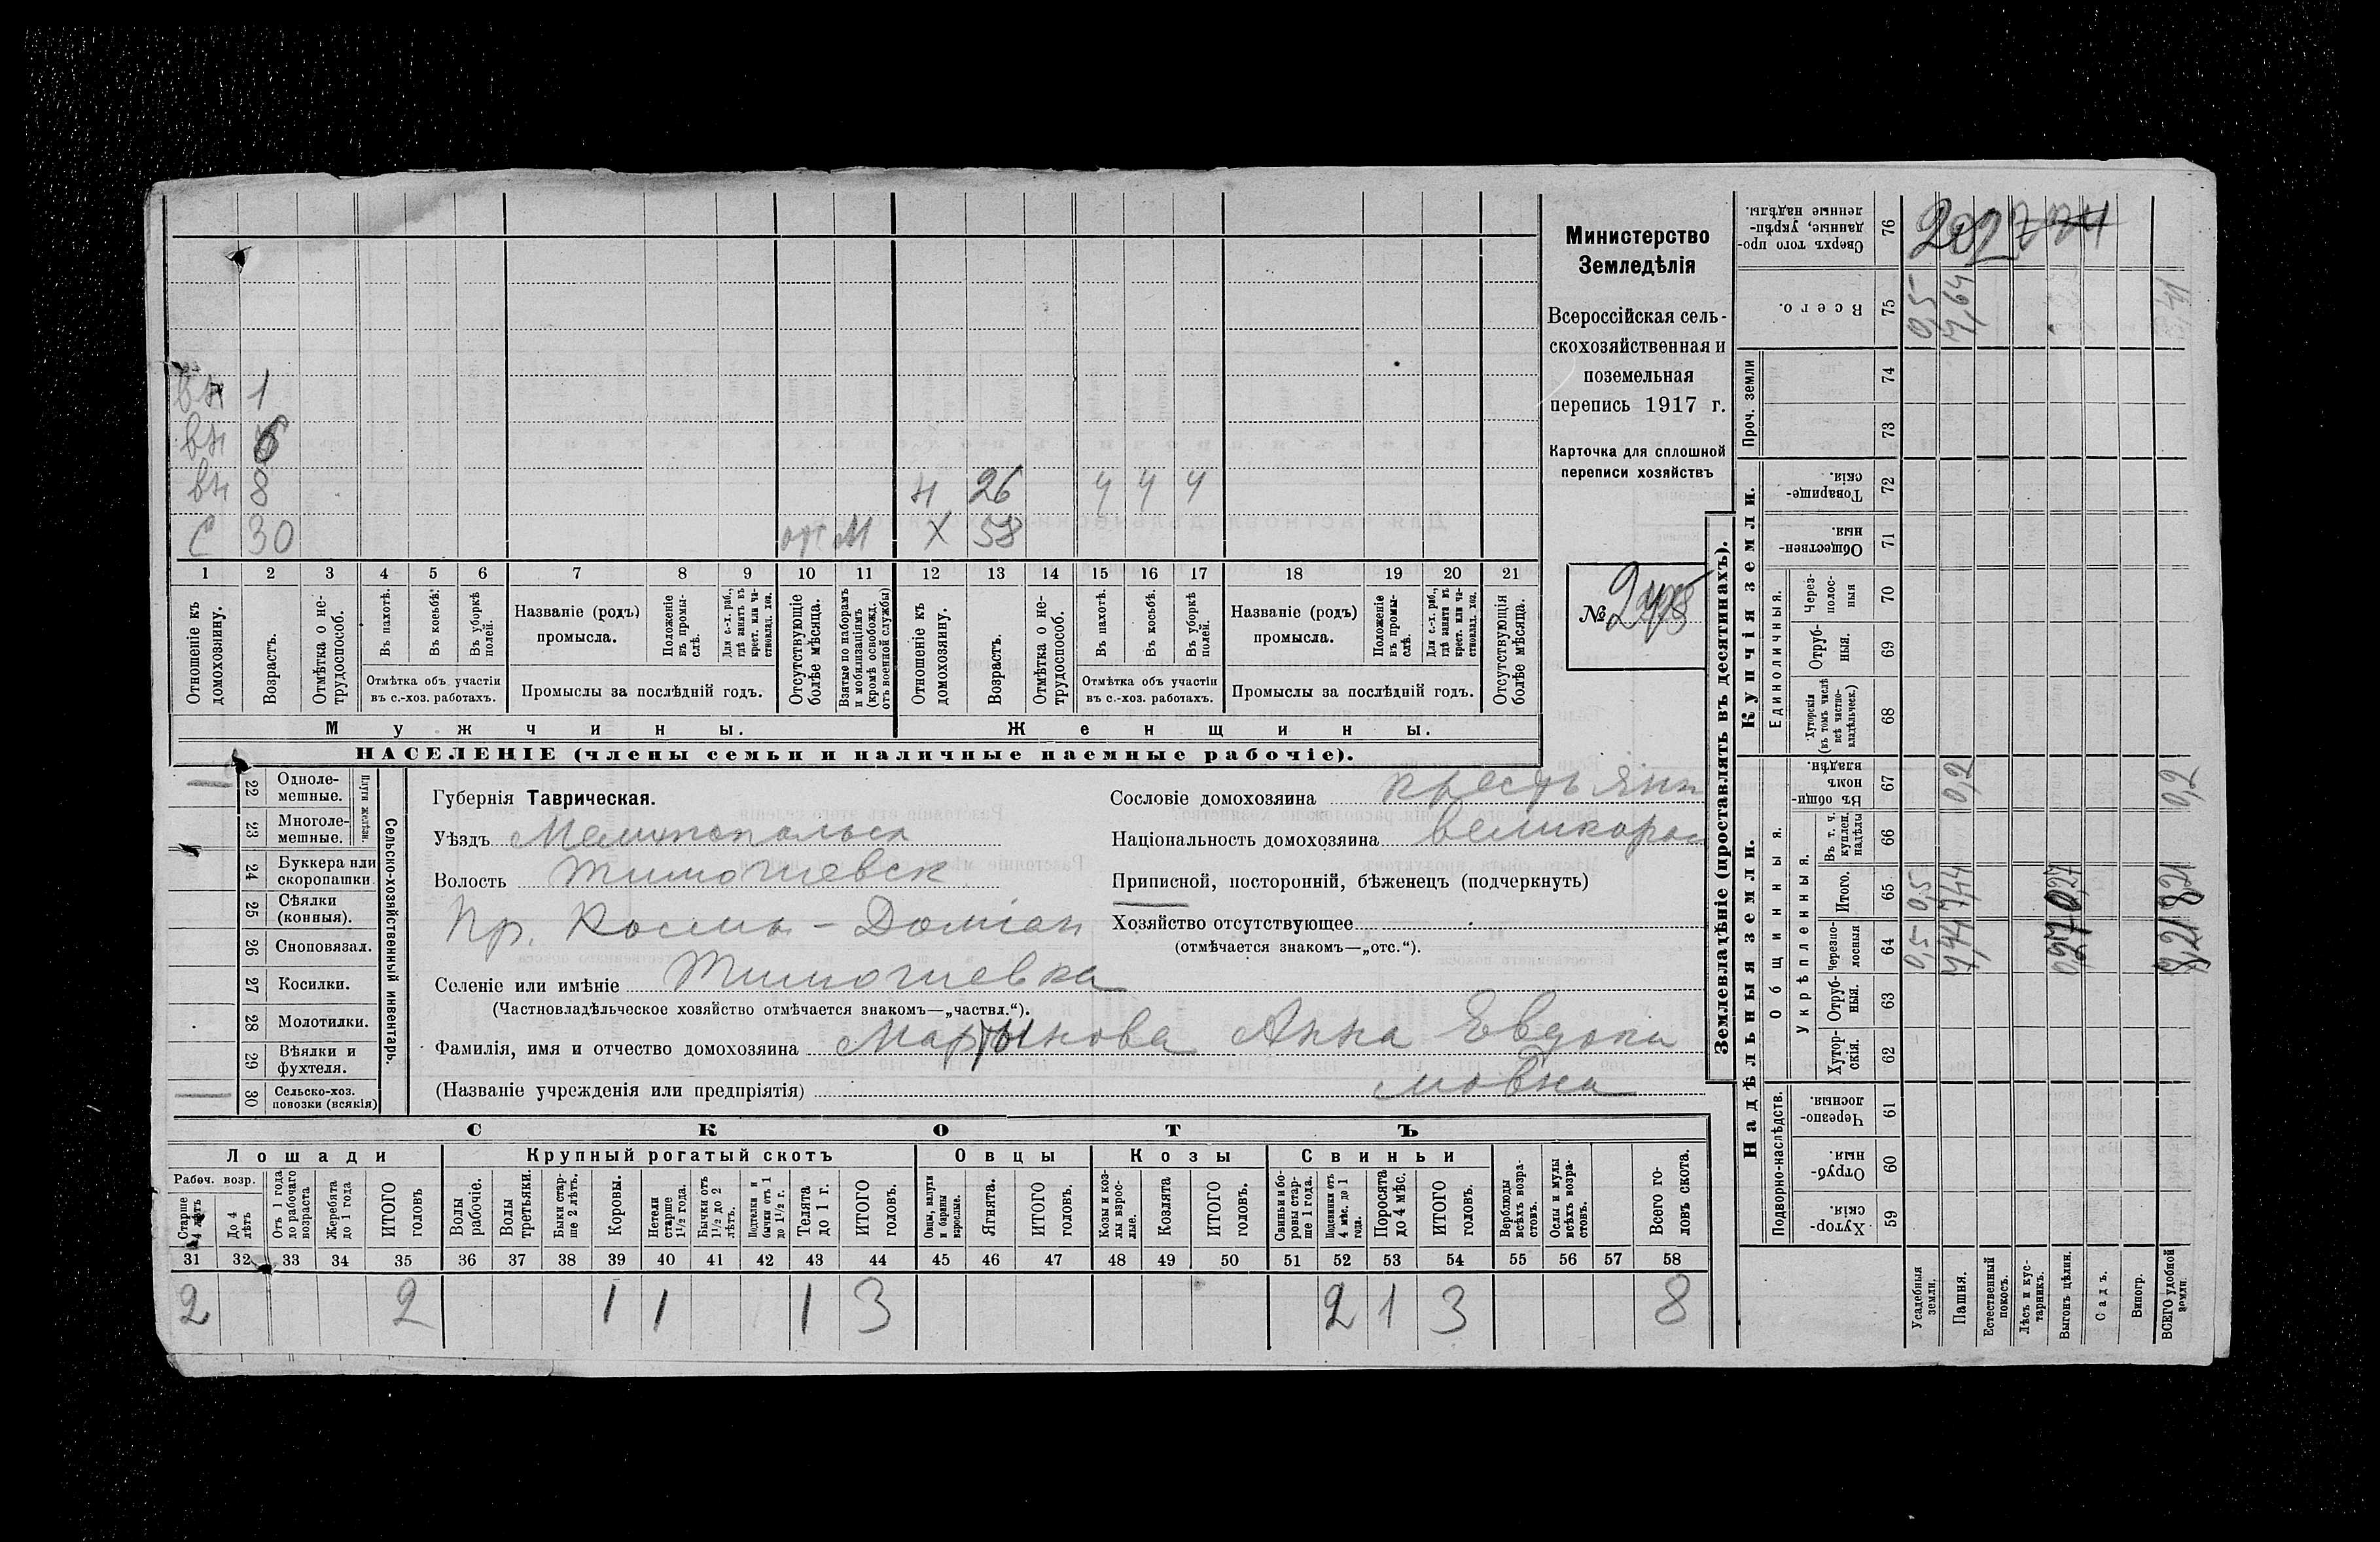 вн 1
вн
вн 8 н 26 ч ч ч
С 30 от М Х 58
1 2 3 4 5 6 7 8 9 10 11 12 13 14 15 16 17 18 19 20 21
Отношеніе къ домохозяину.
Возрастъ.
Отмѣтка о не-трудоспособ.
Въ пахотѣ.
Въ косьбѣ.
Въ уборкѣ полей.
Отмѣтка объ участіи
въ с.-хоз. работахъ.
Названіе (родъ)
промысла.
Положеніе въ промы-слѣ.
Для с.-х. раб., гдѣ занятъ въ крест. или ча-стновлад. хоз.
Промыслы за послѣдній годъ.
Отсутствующіе болѣе мѣсяца.
Взятые по наборамъ и мобилизаціямъ (кромѣ освобожд. отъ военной службы)
Отношеніе къ домохозяину.
Возрастъ.
Отмѣтка о не-трудоспособ.
Въ пахотѣ.
Въ косьбѣ.
Въ уборкѣ полей.
Отмѣтка объ участіи
въ с.-хоз. работахъ.
Названіе (родъ)
промысла.
Положеніе въ промы-слѣ.
Для с.-х. раб., гдѣ занята въ крест. или ча-стновлад. хоз.
Промыслы за послѣдній годъ.
Отсутствующія болѣе мѣсяца.
Мужчины. Женщины.
НАСЕЛЕНІЕ (члены семьи и наличные наемные рабочіе).
Министерство
Земледѣлія
Всероссійская сель-
скохозяйственная и
поземельная
перепись 1917 г.
Карточка для сплошной
переписи хозяйствъ
№
22 Одноле-мешные.
23 Многоле-мешные.
Плуги желѣзн.
24 Буккера или скоропашки
25 Сѣялки (конныя).
26 Сноповязал.
27 Косилки.
28 Молотилки.
29 Вѣялки и фухтеля.
30 Сельско-хоз. повозки (всякія)
Сельско-хозяйственный инвентарь.
Губернія Таврическая.
Уѣздъ Мелитопольск
Волость Тимошевск
Пр. Космы-Доміан
Селеніе или имѣніе Тимошевка
(Частновладѣльческое хозяйство отмѣчается знакомъ—„частвл.“).
Фамилія, имя и отчество домохозяина Мартынова Анна Евдоки
(Названіе учрежденія или предпріятія) мовна
Сословіе домохозяина крестьянк
Національность домохозяина великорос
Приписной, посторонній, бѣженецъ (подчеркнуть)
Хозяйство отсутствующее
(отмѣчается знакомъ—„отс.“).
СКОТЪ
Лошади Крупный рогатый скотъ Овцы Козы Свиньи
Рабоч. возр.
Старше 4 лѣтъ
До 4 лѣтъ
Отъ 1 года до рабочаго возраста
Жеребята до 1 года
ИТОГО головъ
Волы рабочіе.
Волы третьяки.
Быки стар-ше 2 лѣтъ.
Коровы.
Нетели старше 1½ года.
Бычки отъ 1½ до 2 лѣтъ.
Подтелки и бычки отъ 1 до 1½ г.
Телята до 1 г.
ИТОГО головъ.
Овцы, валухи и бараны взрослые.
Ягнята.
ИТОГО головъ.
Козы и коз-лы взрос-лые.
Козлята
ИТОГО головъ.
Свиньи и бо-ровы стар-ше 1 года.
Подсвинки отъ 4 мѣс. до 1 года.
Поросята до 4 мѣс.
ИТОГО головъ.
Верблюды всѣхъ возра-стовъ.
Ослы и мулы всѣхъ возра-стовъ.
Всего го-ловъ скота.
31 32 33 34 35 36 37 38 39 40 41 42 43 44 45 46 47 48 49 50 51 52 53 54 55 56 57 58
2 2 1 1 1 3 2 1 3 8
Землевладѣніе (проставлять въ десятинахъ).
Надѣльныя земли. Купчія земли.
Подворно-наслѣдств.
Общинныя.
Укрѣпленныя.
Единоличныя.
Проч. земли
59 Хутор-скія.
60 Отруб-ныя.
61 Черезпо-лосныя
62 Хутор-скія.
63 Отруб-ныя.
64 Черезпо-лосныя
65 Итого.
66 Въ т. ч. куплен. надѣлы
67 Въ общин-номъ владѣн.
68 Хуторскія (въ томъ числѣ всѣ частно-владѣльческ.)
69 Отруб-ныя.
70 Через-полос-ныя
71 Обществен-ныя
72 Товарище-скія.
73
74
75 Всего.
76 Сверхъ того про-данные, укрѣп-ленные надѣлы.
Усадебныя земли. 0,5 0,5 0,5
Пашня. 7,44 7,44 0,2 7,64
Естественный покосъ.
Лѣсъ и кус-тарникъ.
Выгонъ цѣлин. 0,27 0,27
Садъ.
Виногр.
ВСЕГО удобной земли. 8,21 8,21 0,2